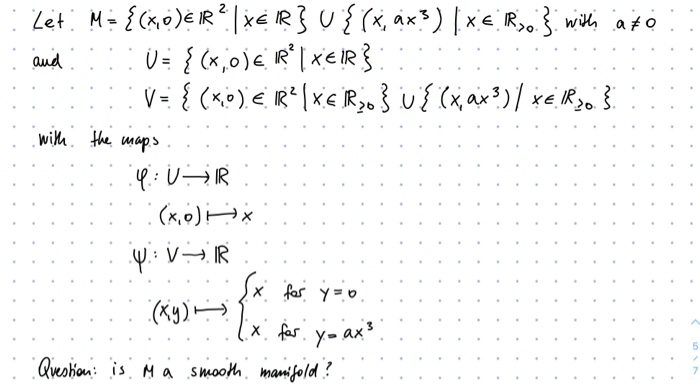 Let M = {(x,0) ∈ ℝ² | x ∈ ℝ} ∪ {(x, ax³) | x ∈ ℝ_{>0}} with a ≠ 0
and U = {(x,0) ∈ ℝ² | x ∈ ℝ}
V = {(x,0) ∈ ℝ² | x ∈ ℝ_{≥0}} ∪ {(x, ax³) | x ∈ ℝ_{>0}}
with the maps
φ: U ⟶ ℝ
(x,0) ⟼ x
ψ: V ⟶ ℝ
(x,y) ⟼ { x for y = 0
x for y = ax³
Question: is M a smooth manifold?
5
7